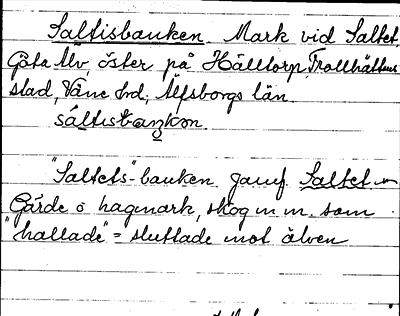 Saltisbanken Mark vid Saltet,
Göta Älv, öster på Hälltorp Trollhättans
stad, Väne hd, Älfsborgs län.
sáltisbaŋkən.
"Saltets"-banken. Jämf Saltet
Gärde o hagmark, skog m m. som
"hallade" = sluttade mot älven